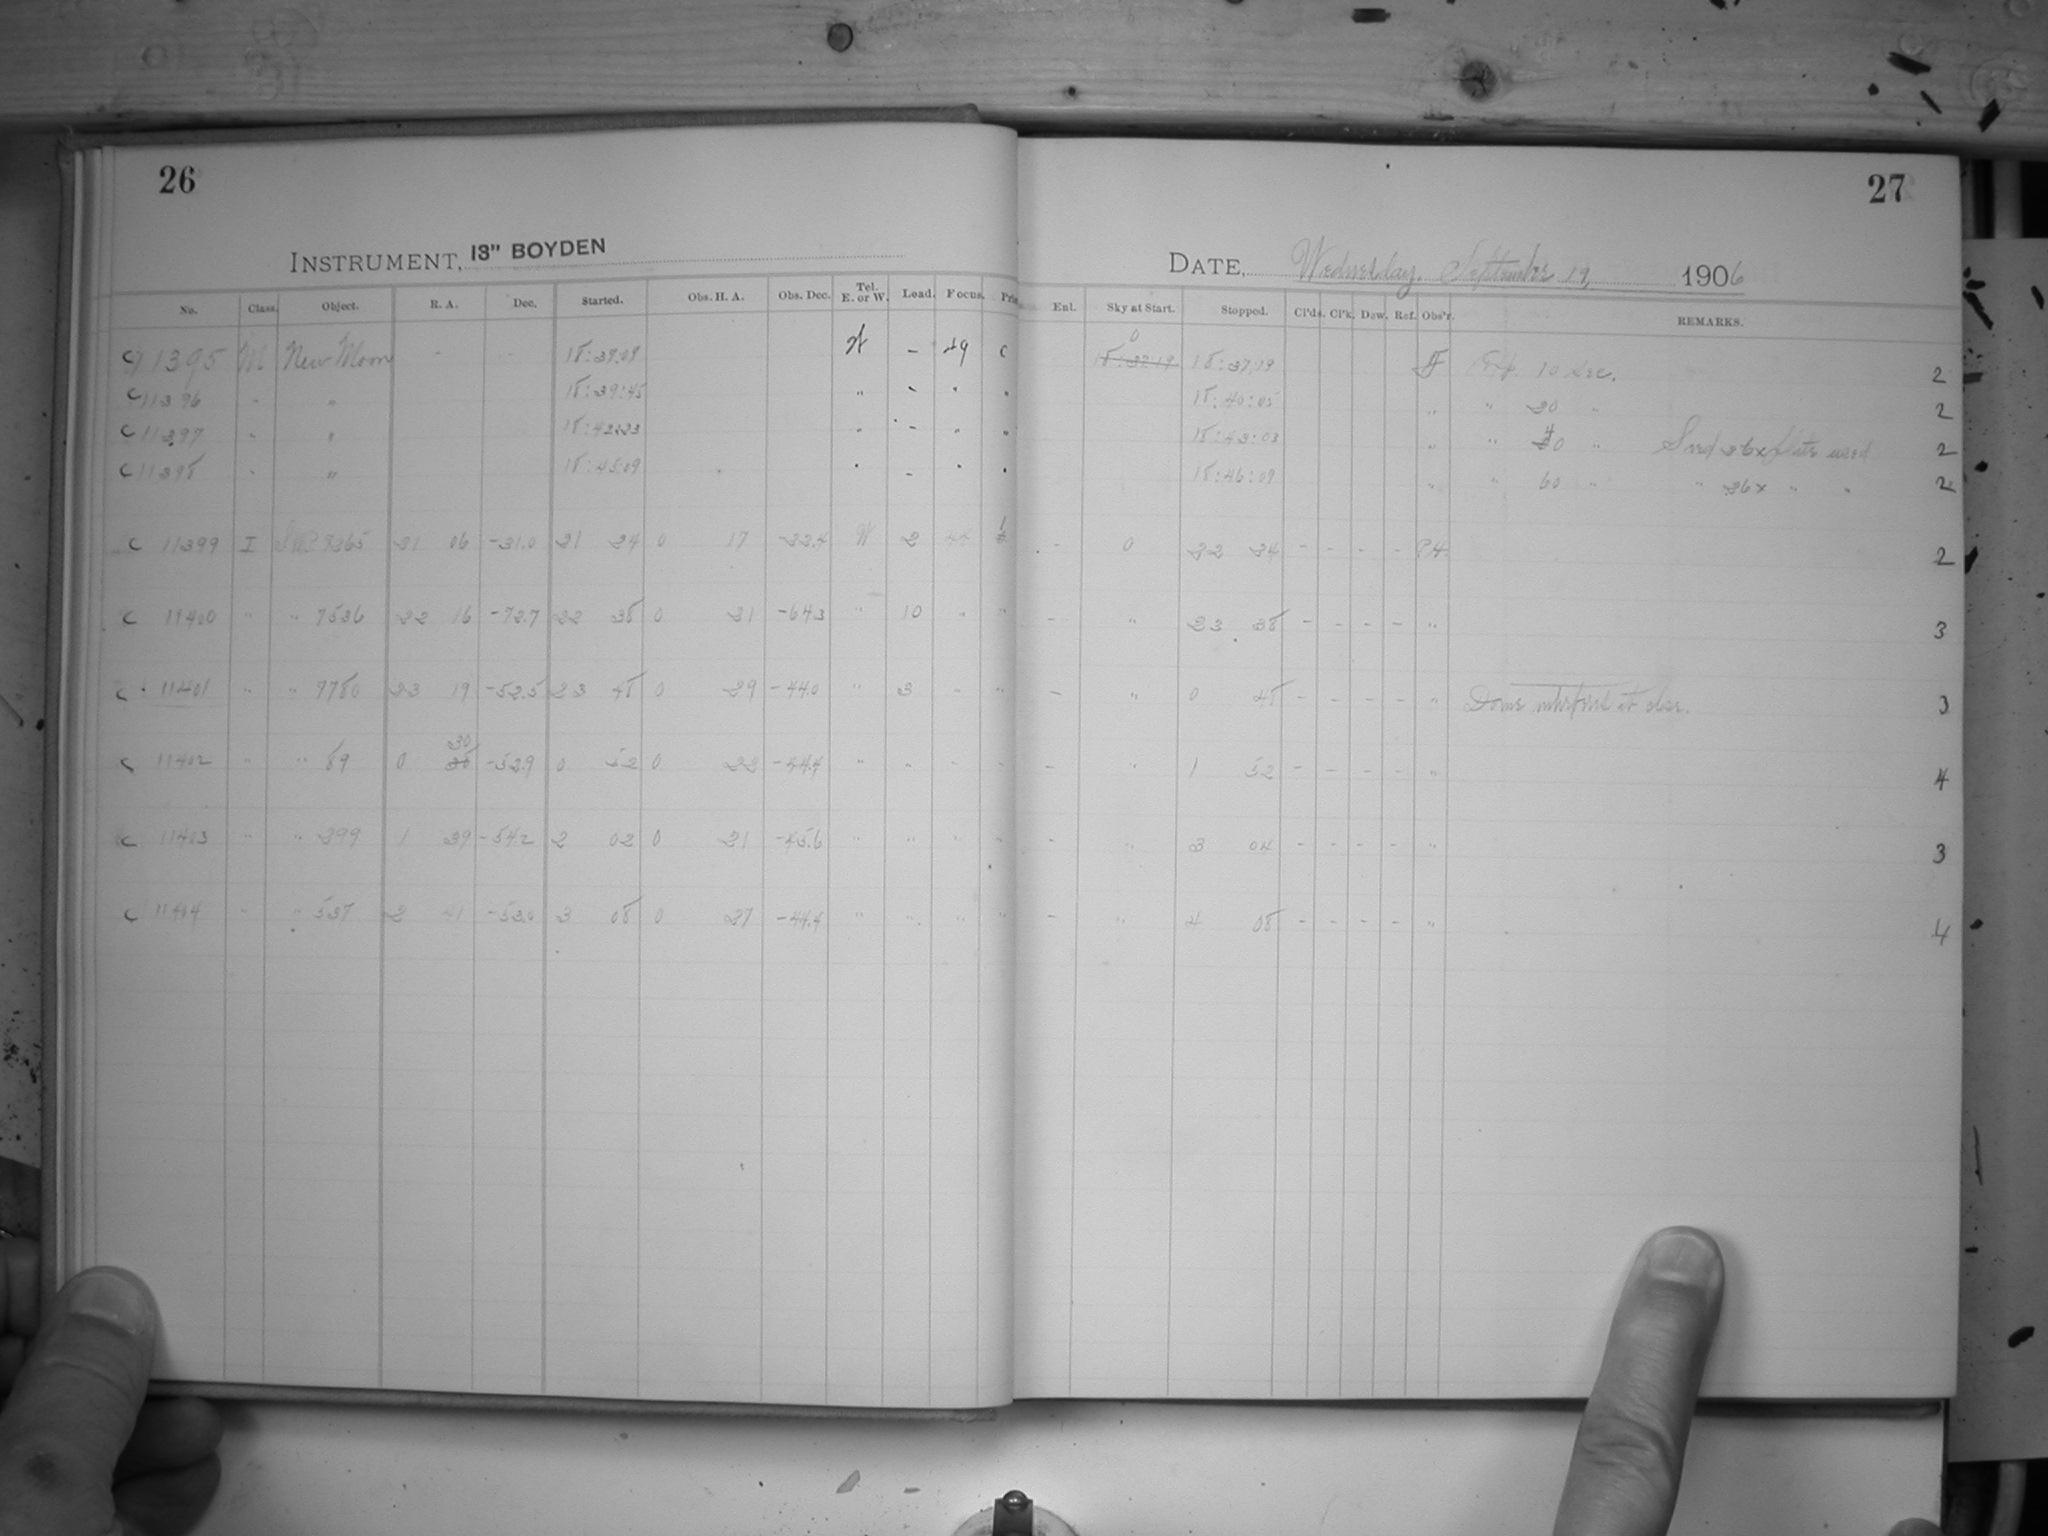 26
27
INSTRUMENT, 13" BOYDEN
DATE, Wednesday, September 19, 1906
No. Class. Object. R. A. Dec. Started. Obs. H. A. Obs. Dec. Tel. E. or W. Load. Focus. Enl. Sky at Start. Stopped. Cl'ds. Cl'k. Dew. Ref. Obs'r. REMARKS.
C 11395 M New Moon - - – 49 C 0 18:37:19 18:37:19 Exp. 10 sec. 2
C 11396 " " 18:39:45 " - " " 18:40:05 " " 20 " 2
C 11397 " " 18:42:23 " - " " 18:43:03 " " 40 " Seed 26x plate used 2
C 11398 " " 18:45:09 " - " " 18:46:09 " " 60 " " 26x " " 2
C 11399 I 21 06 -31.0 21 24 0 17 -22.4 W 2 44 - 0 22 24 - - - - 2
C 11400 " " 7536 22 16 -72.7 22 38 0 21 -64.3 " 10 " " - " 23 38 - - - - " 3
C 11401 " " 23 19 -52.5 23 48 0 29 -44.0 " 3 " " - " 0 48 - - - - " Dome 3
C 11402 " " 89 0 30 -52.9 0 52 0 22 -44.4 " " - - - " 1 52 - - - - " 4
C 11403 " " 299 1 39 -54.2 2 02 0 21 -45.6 " " " " - " 3 04 - - - - " 3
C 11404 " " 537 2 41 -53.0 3 08 0 27 -44.4 " " " " - " 4 08 - - - - " 4